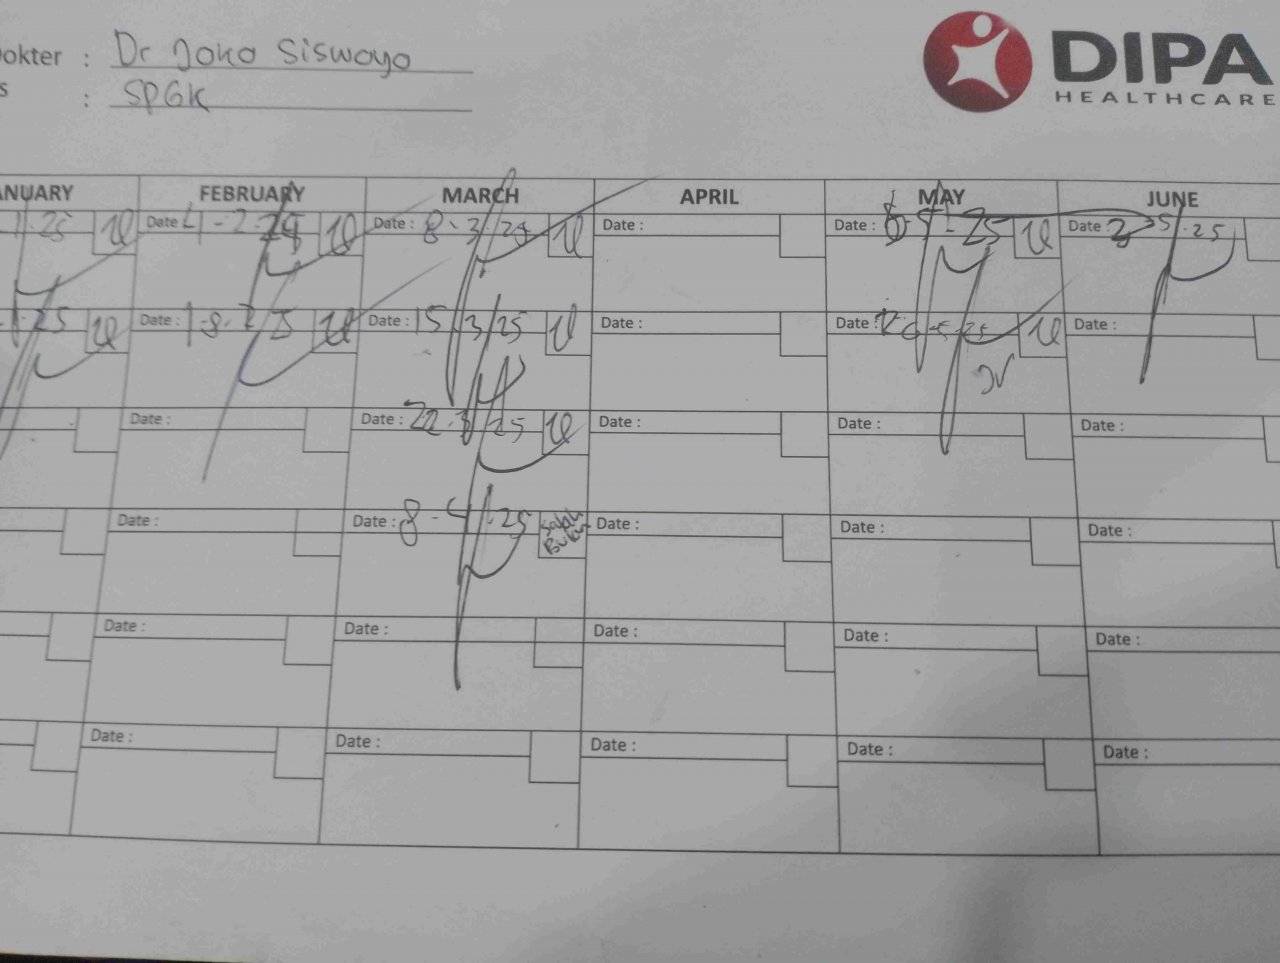 Dokter : Dr Joko Siswoyo
s : SPGK
DIPA
HEALTHCARE
ANUARY FEBRUARY MARCH APRIL MAY JUNE
25 Date 4-2-25 Date : 8-3/25 Date : Date : 25 Date 25
25 Date : 18-2/25 Date : 15/3/25 Date : Date : Date :
Date : Date : 22-3/25 Date : Date : Date :
Date : Date : 8-4/25 Salah Bulan Date : Date : Date :
Date : Date : Date : Date : Date :
Date : Date : Date : Date : Date :